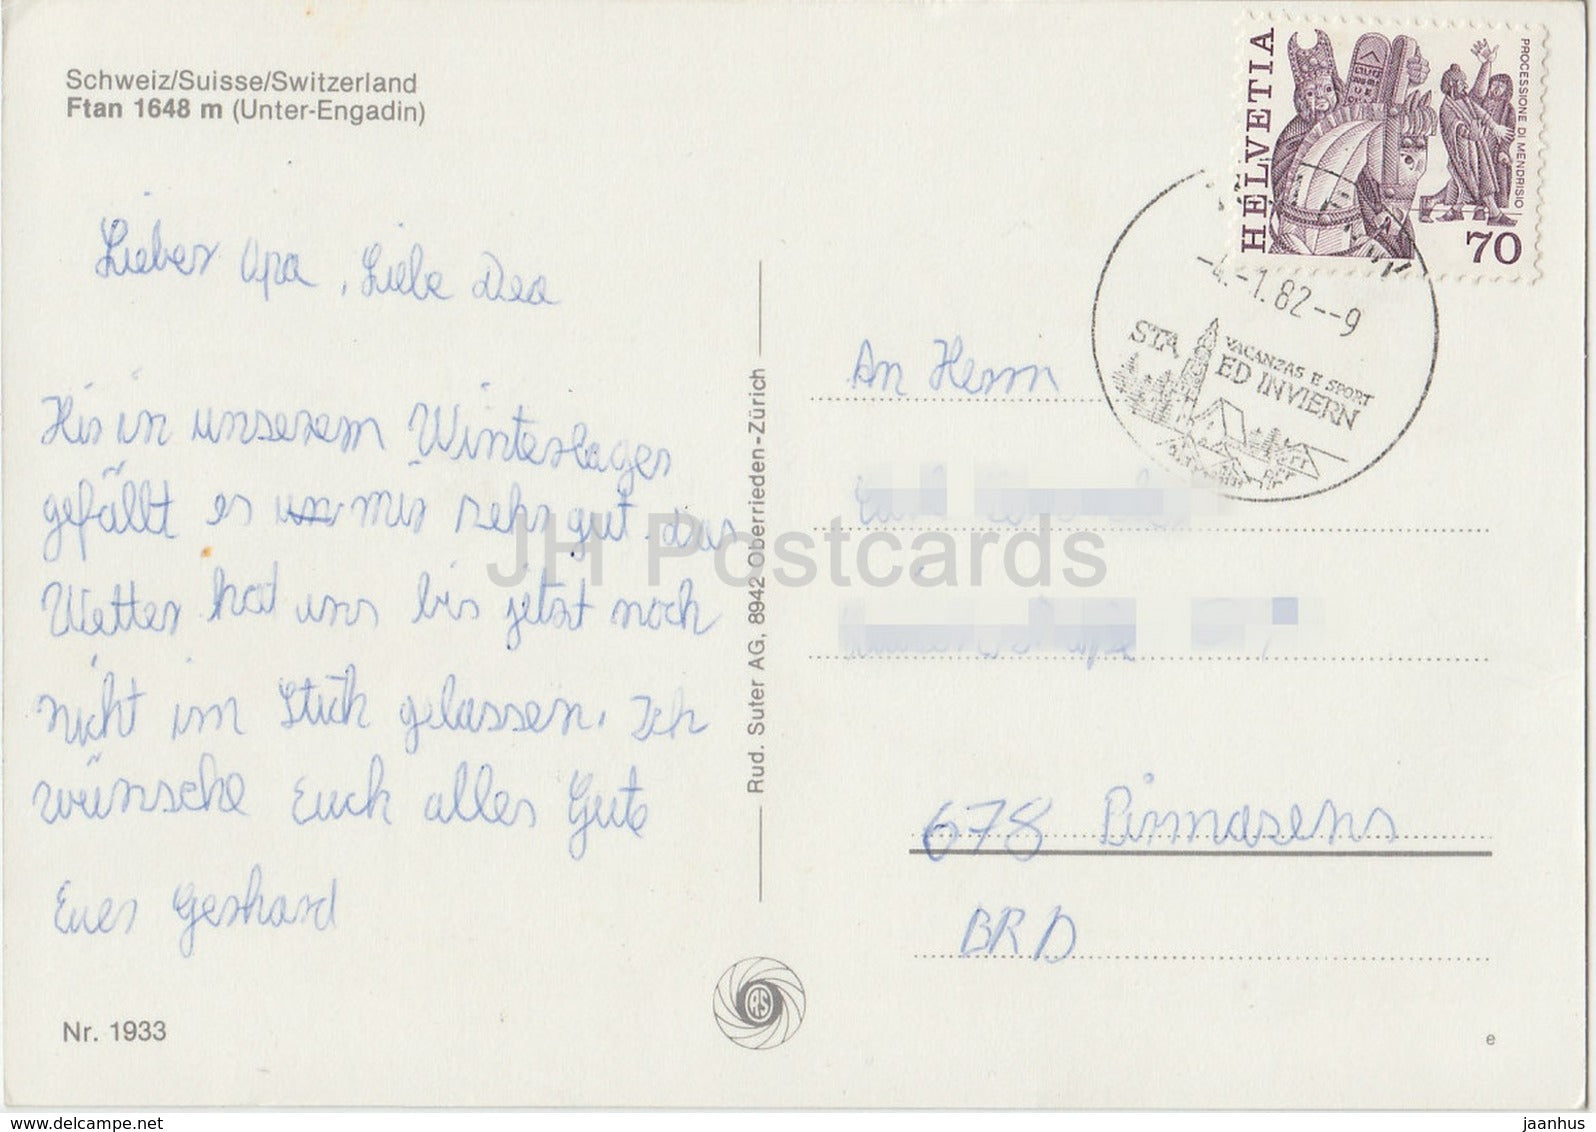 Schweiz/Suisse/Switzerland
Ftan 1648 m (Unter-Engadin)
Lieber Opa, Liebe Dea
Hier in unserem Winterlager
gefällt es mir sehr gut. Das
Wetter hat uns bis jetzt noch
nicht im Stich gelassen. Ich
wünsche Euch alles Gute
Euer Gerhard
Nr. 1933
Rud. Suter AG, 8942 Oberrieden-Zürich
RS
HELVETIA
PROCESSIONE DI MENDRISIO
70
-4.-1.82--9
STA
VACANZAS E SPORT
ED INVIERN
An Herrn
678 Pirmasens
BRD
e
JH Postcards
www.delcampe.net
jaanhus